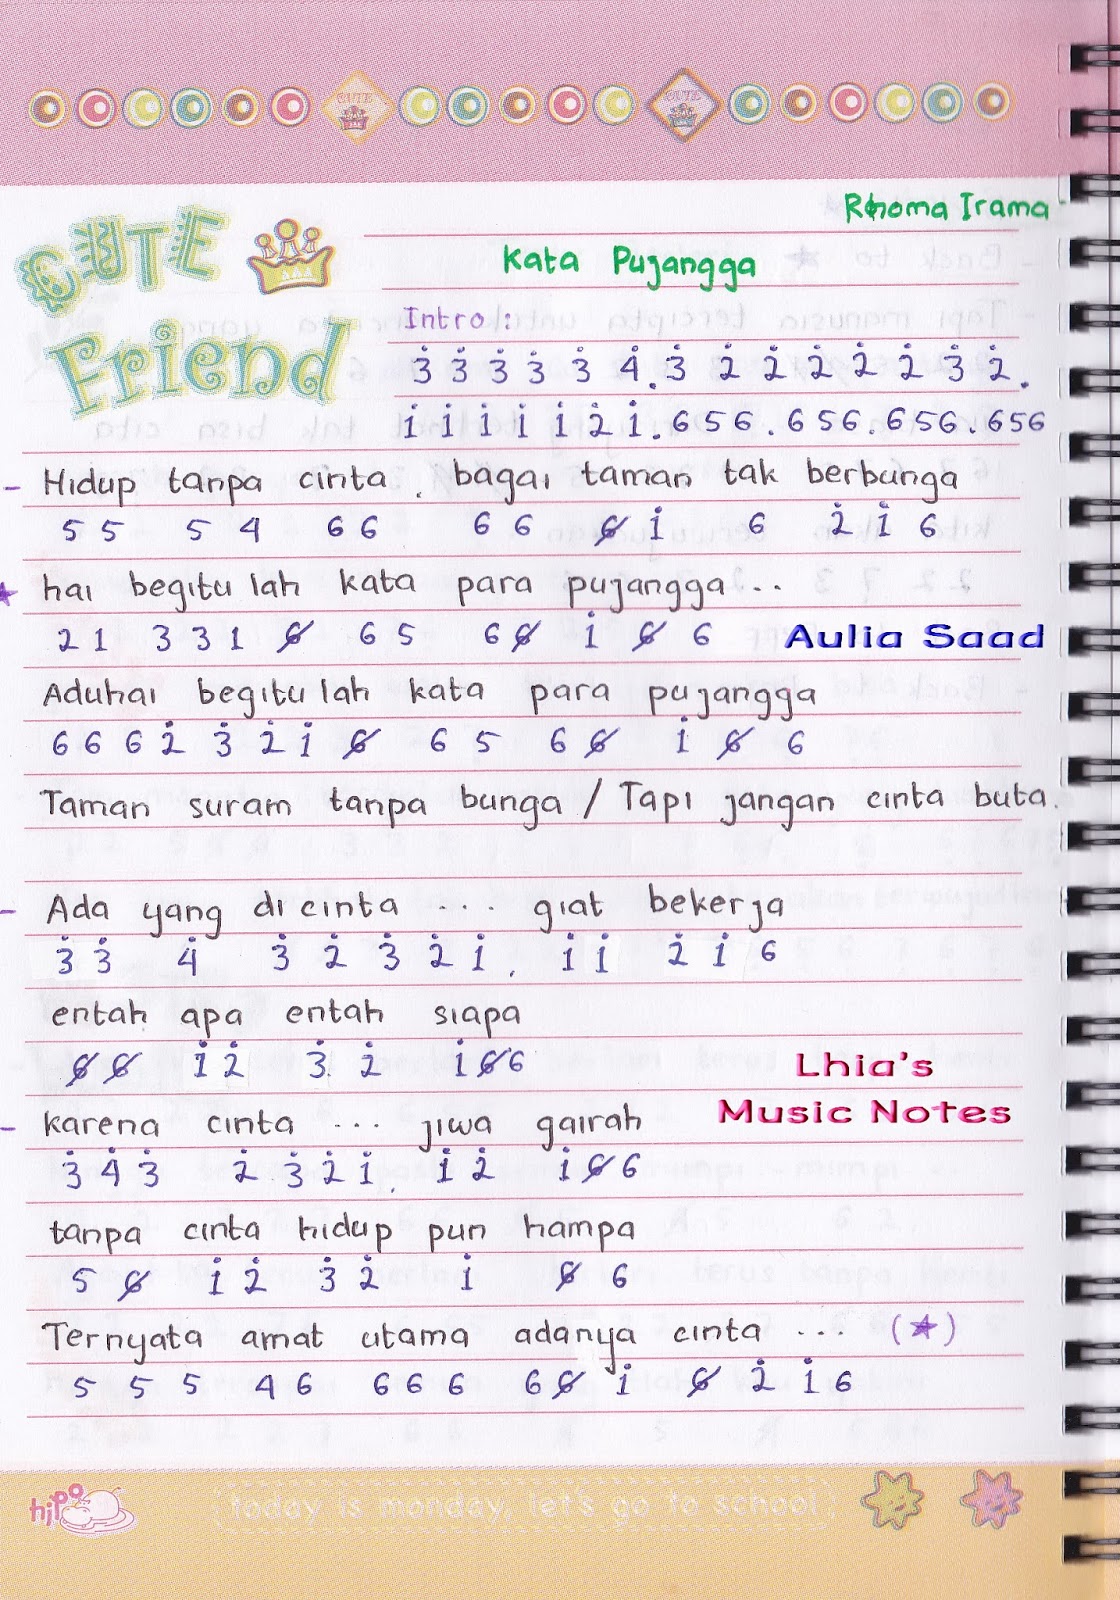 CUTE CUTE
Rhoma Irama
CUTE
Friend
Kata Pujangga
Intro :
3̇ 3̇ 3̇ 3̇ 3̇ 4̇ . 3̇ 2̇ 2̇ 2̇ 2̇ 2̇ 3̇ 2̇ .
1̇ 1̇ 1̇ 1̇ 1̇ 2̇ 1̇ . 6 5 6 . 6 5 6 . 6 5 6 . 6 5 6
- Hidup tanpa cinta . bagai taman tak berbunga
5 5 5 4 6 6 6 6 6̸ 1̇ 6 2̇ 1̇ 6
★ hai begitu lah kata para pujangga . .
2 1 3 3 1 6̸ 6 5 6 6̸ 1̇ 6̸ 6 Aulia Saad
Aduhai begitu lah kata para pujangga
6 6 6 2̇ 3̇ 2̇ 1̇ 6̸ 6 5 6 6̸ 1̇ 6̸ 6
Taman suram tanpa bunga / Tapi jangan cinta buta.
- Ada yang di cinta . . . giat bekerja
3̇ 3̇ 4̇ 3̇ 2̇ 3̇ 2̇ 1̇ . 1̇ 1̇ 2̇ 1̇ 6
entah apa entah siapa
6̸ 6̸ 1̇ 2̇ 3̇ 2̇ 1̇ 6̸ 6
Lhia's
Music Notes
- karena cinta . . . jiwa gairah
3̇ 4̇ 3̇ 2̇ 3̇ 2̇ 1̇ . 1̇ 2̇ 1̇ 6̸ 6
tanpa cinta hidup pun hampa
5 6̸ 1̇ 2̇ 3̇ 2̇ 1̇ 6̸ 6
Ternyata amat utama adanya cinta . . . (★)
5 5 5 4 6 6 6 6 6 6̸ 1̇ 6̸ 2̇ 1̇ 6
hipo
today is monday, let's go to school